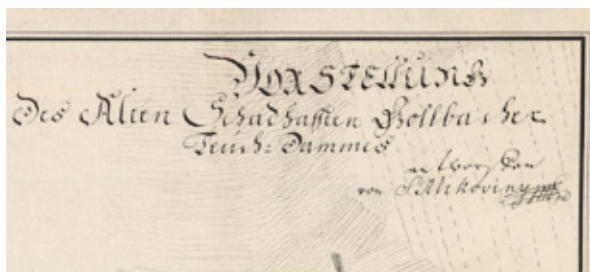 Vorstellung
Des Alten Schadhafften Gollbacher
Teuch=Dammes
entworffen
von S Mikoviny